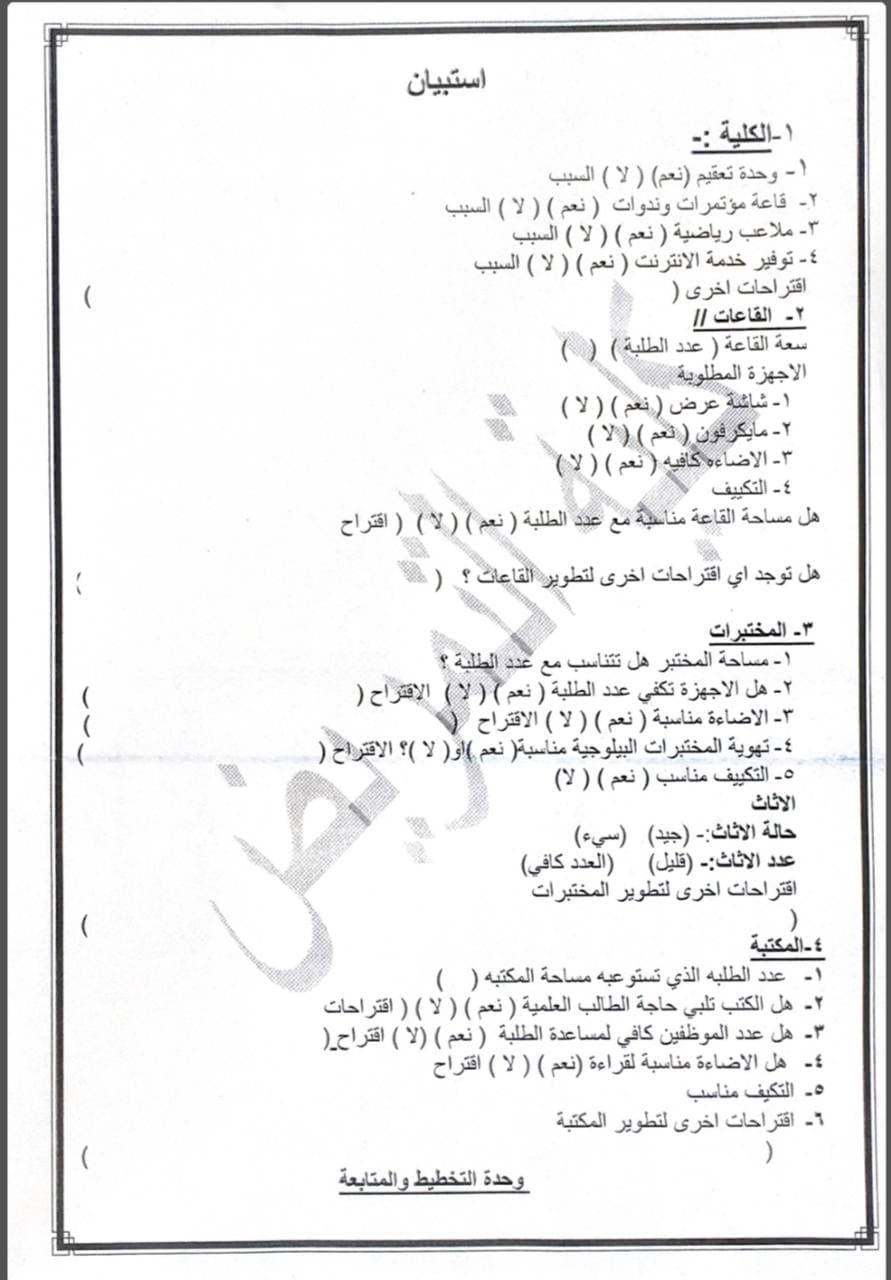 استبيان
١-الكلية :-
١- وحدة تعقيم (نعم) ( لا ) السبب
٢- قاعة مؤتمرات وندوات ( نعم ) ( لا ) السبب
٣- ملاعب رياضية ( نعم ) ( لا ) السبب
٤- توفير خدمة الانترنت ( نعم ) ( لا ) السبب
اقتراحات اخرى ( )
٢- القاعات //
سعة القاعة ( عدد الطلبة ) ( )
الاجهزة المطلوبة
١- شاشة عرض ( نعم ) ( لا )
٢- مايكرفون ( نعم ) ( لا )
٣- الاضاءه كافيه ( نعم ) ( لا )
٤- التكييف
هل مساحة القاعة مناسبة مع عدد الطلبة ( نعم ) ( لا ) ( اقتراح
هل توجد اي اقتراحات اخرى لتطوير القاعات ؟ ( )
٣- المختبرات
١- مساحة المختبر هل تتناسب مع عدد الطلبة ؟
٢- هل الاجهزة تكفي عدد الطلبة ( نعم ) ( لا ) الاقتراح ( )
٣- الاضاءة مناسبة ( نعم ) ( لا ) الاقتراح ( )
٤- تهوية المختبرات البيلوجية مناسبة( نعم )او( لا )؟ الاقتراح ( )
٥- التكييف مناسب ( نعم ) ( لا)
الاثاث
حالة الاثاث:- (جيد) (سيء)
عدد الاثاث:- (قليل) (العدد كافي)
اقتراحات اخرى لتطوير المختبرات
( )
٤-المكتبة
١- عدد الطلبه الذي تستوعبه مساحة المكتبه ( )
٢- هل الكتب تلبي حاجة الطالب العلمية ( نعم ) ( لا ) ( اقتراحات
٣- هل عدد الموظفين كافي لمساعدة الطلبة ( نعم ) (لا ) اقتراح (
٤- هل الاضاءة مناسبة لقراءة (نعم ) ( لا ) اقتراح
٥- التكيف مناسب
٦- اقتراحات اخرى لتطوير المكتبة
( )
وحدة التخطيط والمتابعة
كلية التمريض